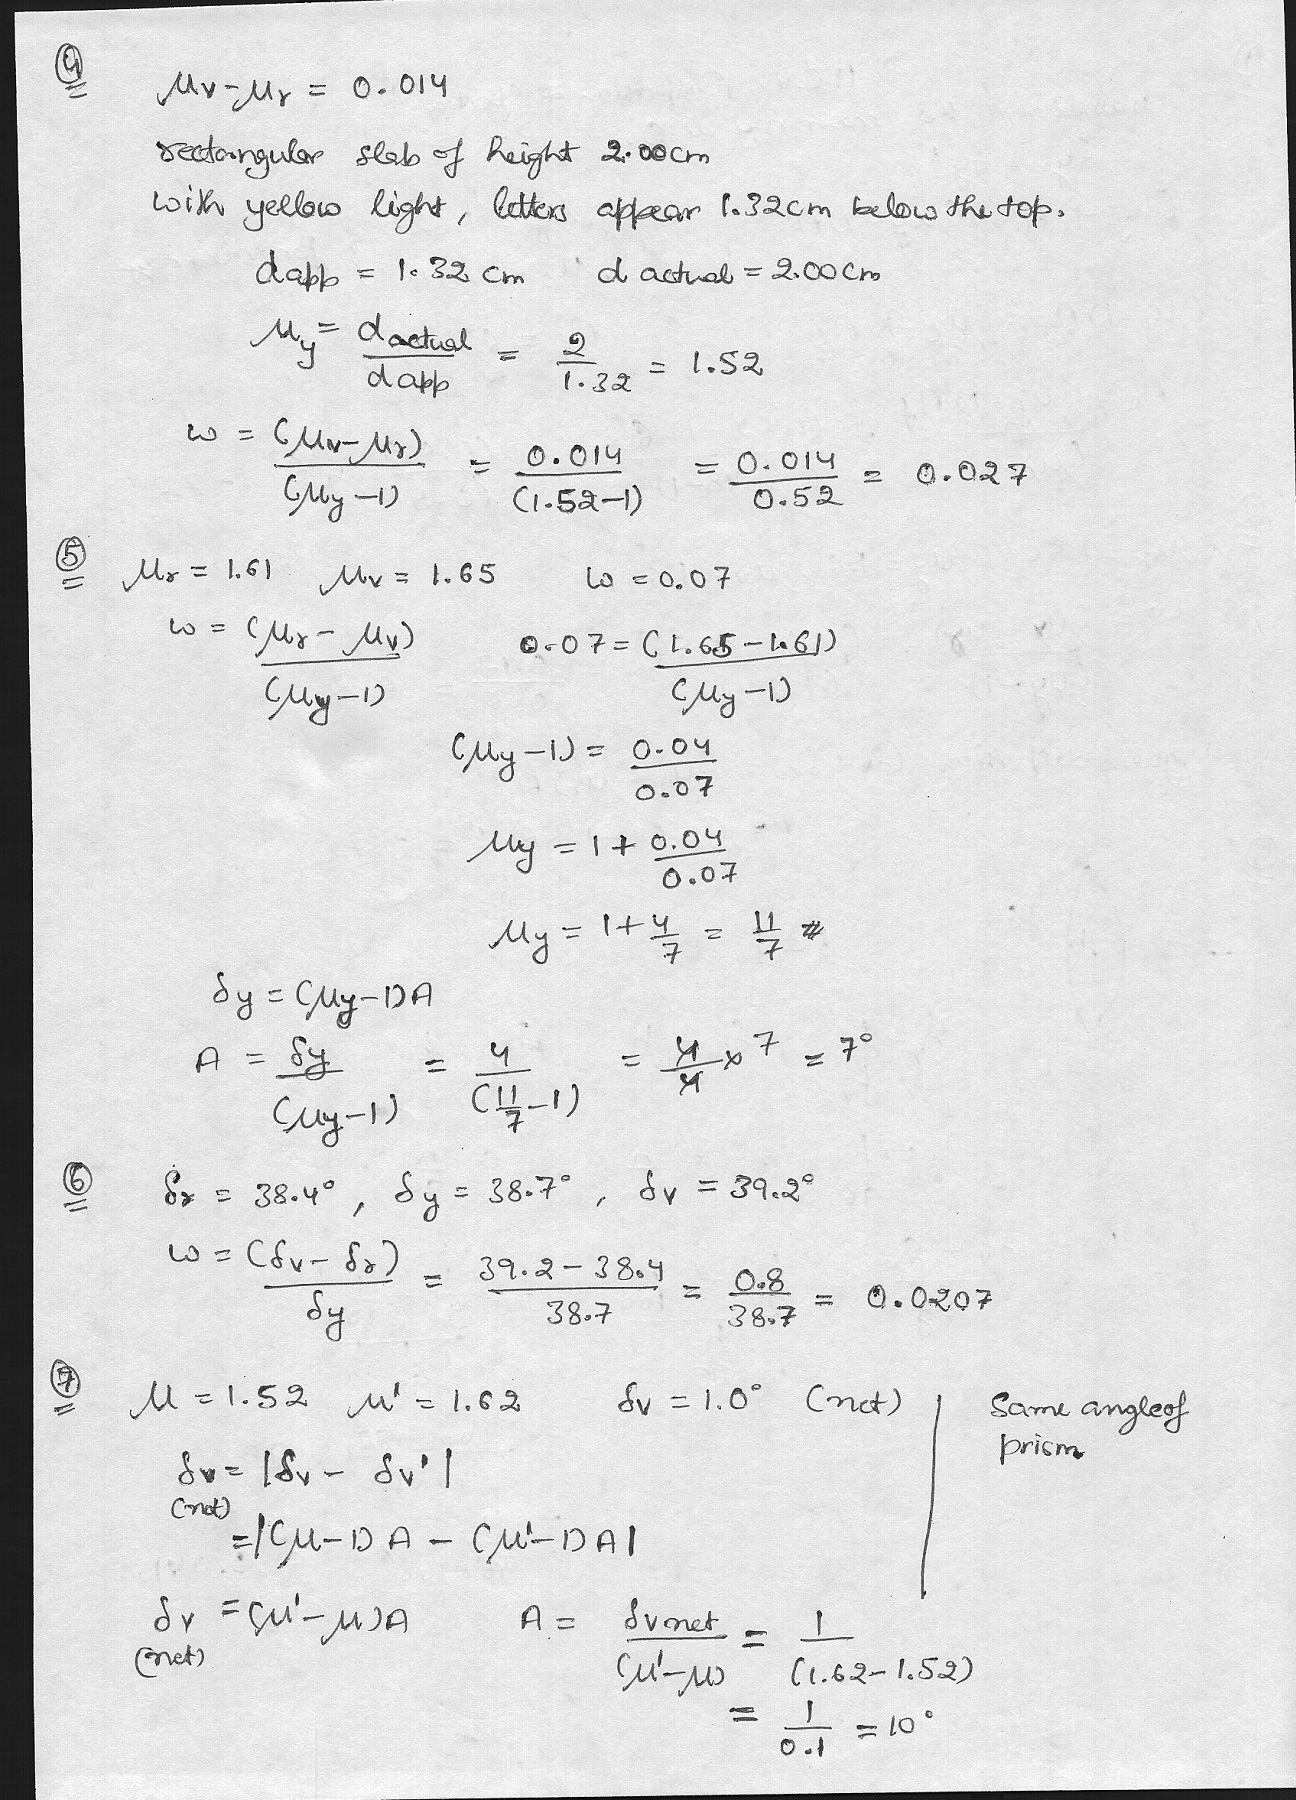 ④ μv - μr = 0.014
rectangular slab of height 2.00cm
with yellow light, letters appear 1.32cm below the top.
dapp = 1.32 cm d actual = 2.00cm
μy = dactual/dapp = 2/1.32 = 1.52
ω = (μv-μr)/(μy-1) = 0.014/(1.52-1) = 0.014/0.52 = 0.027
⑤ μr = 1.61 μv = 1.65 ω = 0.07
ω = (μr - μv)/(μy-1) 0.07 = (1.65-1.61)/(μy-1)
(μy-1) = 0.04/0.07
μy = 1 + 0.04/0.07
μy = 1 + 4/7 = 11/7 #
δy = (μy-1)A
A = δy/(μy-1) = 4/(11/7-1) = 4/4 × 7 = 7°
⑥ δr = 38.4°, δy = 38.7°, δv = 39.2°
ω = (δv - δr)/δy = 39.2-38.4/38.7 = 0.8/38.7 = 0.0207
⑦ μ = 1.52 μ' = 1.62 δv = 1.0° (net)
Same angle of
prism
δv = |δv - δv'|
(net)
= |(μ-1)A - (μ'-1)A|
δv = (μ'-μ)A A = δvnet/(μ'-μ) = 1/(1.62-1.52)
(net)
= 1/0.1 = 10°